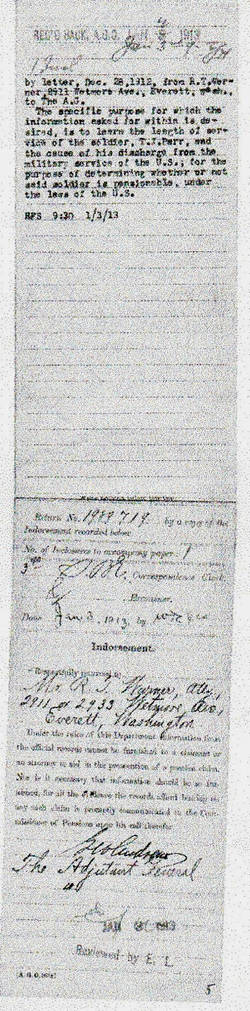 REC'D BACK, A.G.O. JAN 1913
by letter, Dec. 28, 1912, from R.T.Wer-
ner, 2911 Wetmore Ave., Everett, Wash.,
to The A.G.
The specific purpose for which the
information asked for within is de-
sired, is to learn the length of ser-
vice of the soldier, T.J.Parr, and
the cause of his discharge from the
military service of the U.S., for the
purpose of determining whether or not
said soldier is pensionable, under
the laws of the U.S.
RFS 9:30 1/3/13
Return No. 1989719 by a copy of the
Indorsement recorded below
No. of Inclosures to accompany paper: 1
Correspondence Clerk.
Examiner.
Date Jan 3, 1913, by
Indorsement.
Respectfully returned to
Mr. R. T. Werner, Atty,
2911 or 2933 Wetmore Ave.,
Everett, Washington
Under the rules of this Department information from
the official records cannot be furnished to a claimant or
an attorney to aid in the prosecution of a pension claim.
Nor is it necessary that information should be so fur-
nished, for all the evidence the records afford bearing on
any such claim is promptly communicated to the Com-
missioner of Pensions upon his call therefor.
The Adjutant General
JAN 3 1913
Reviewed by E. L.
5